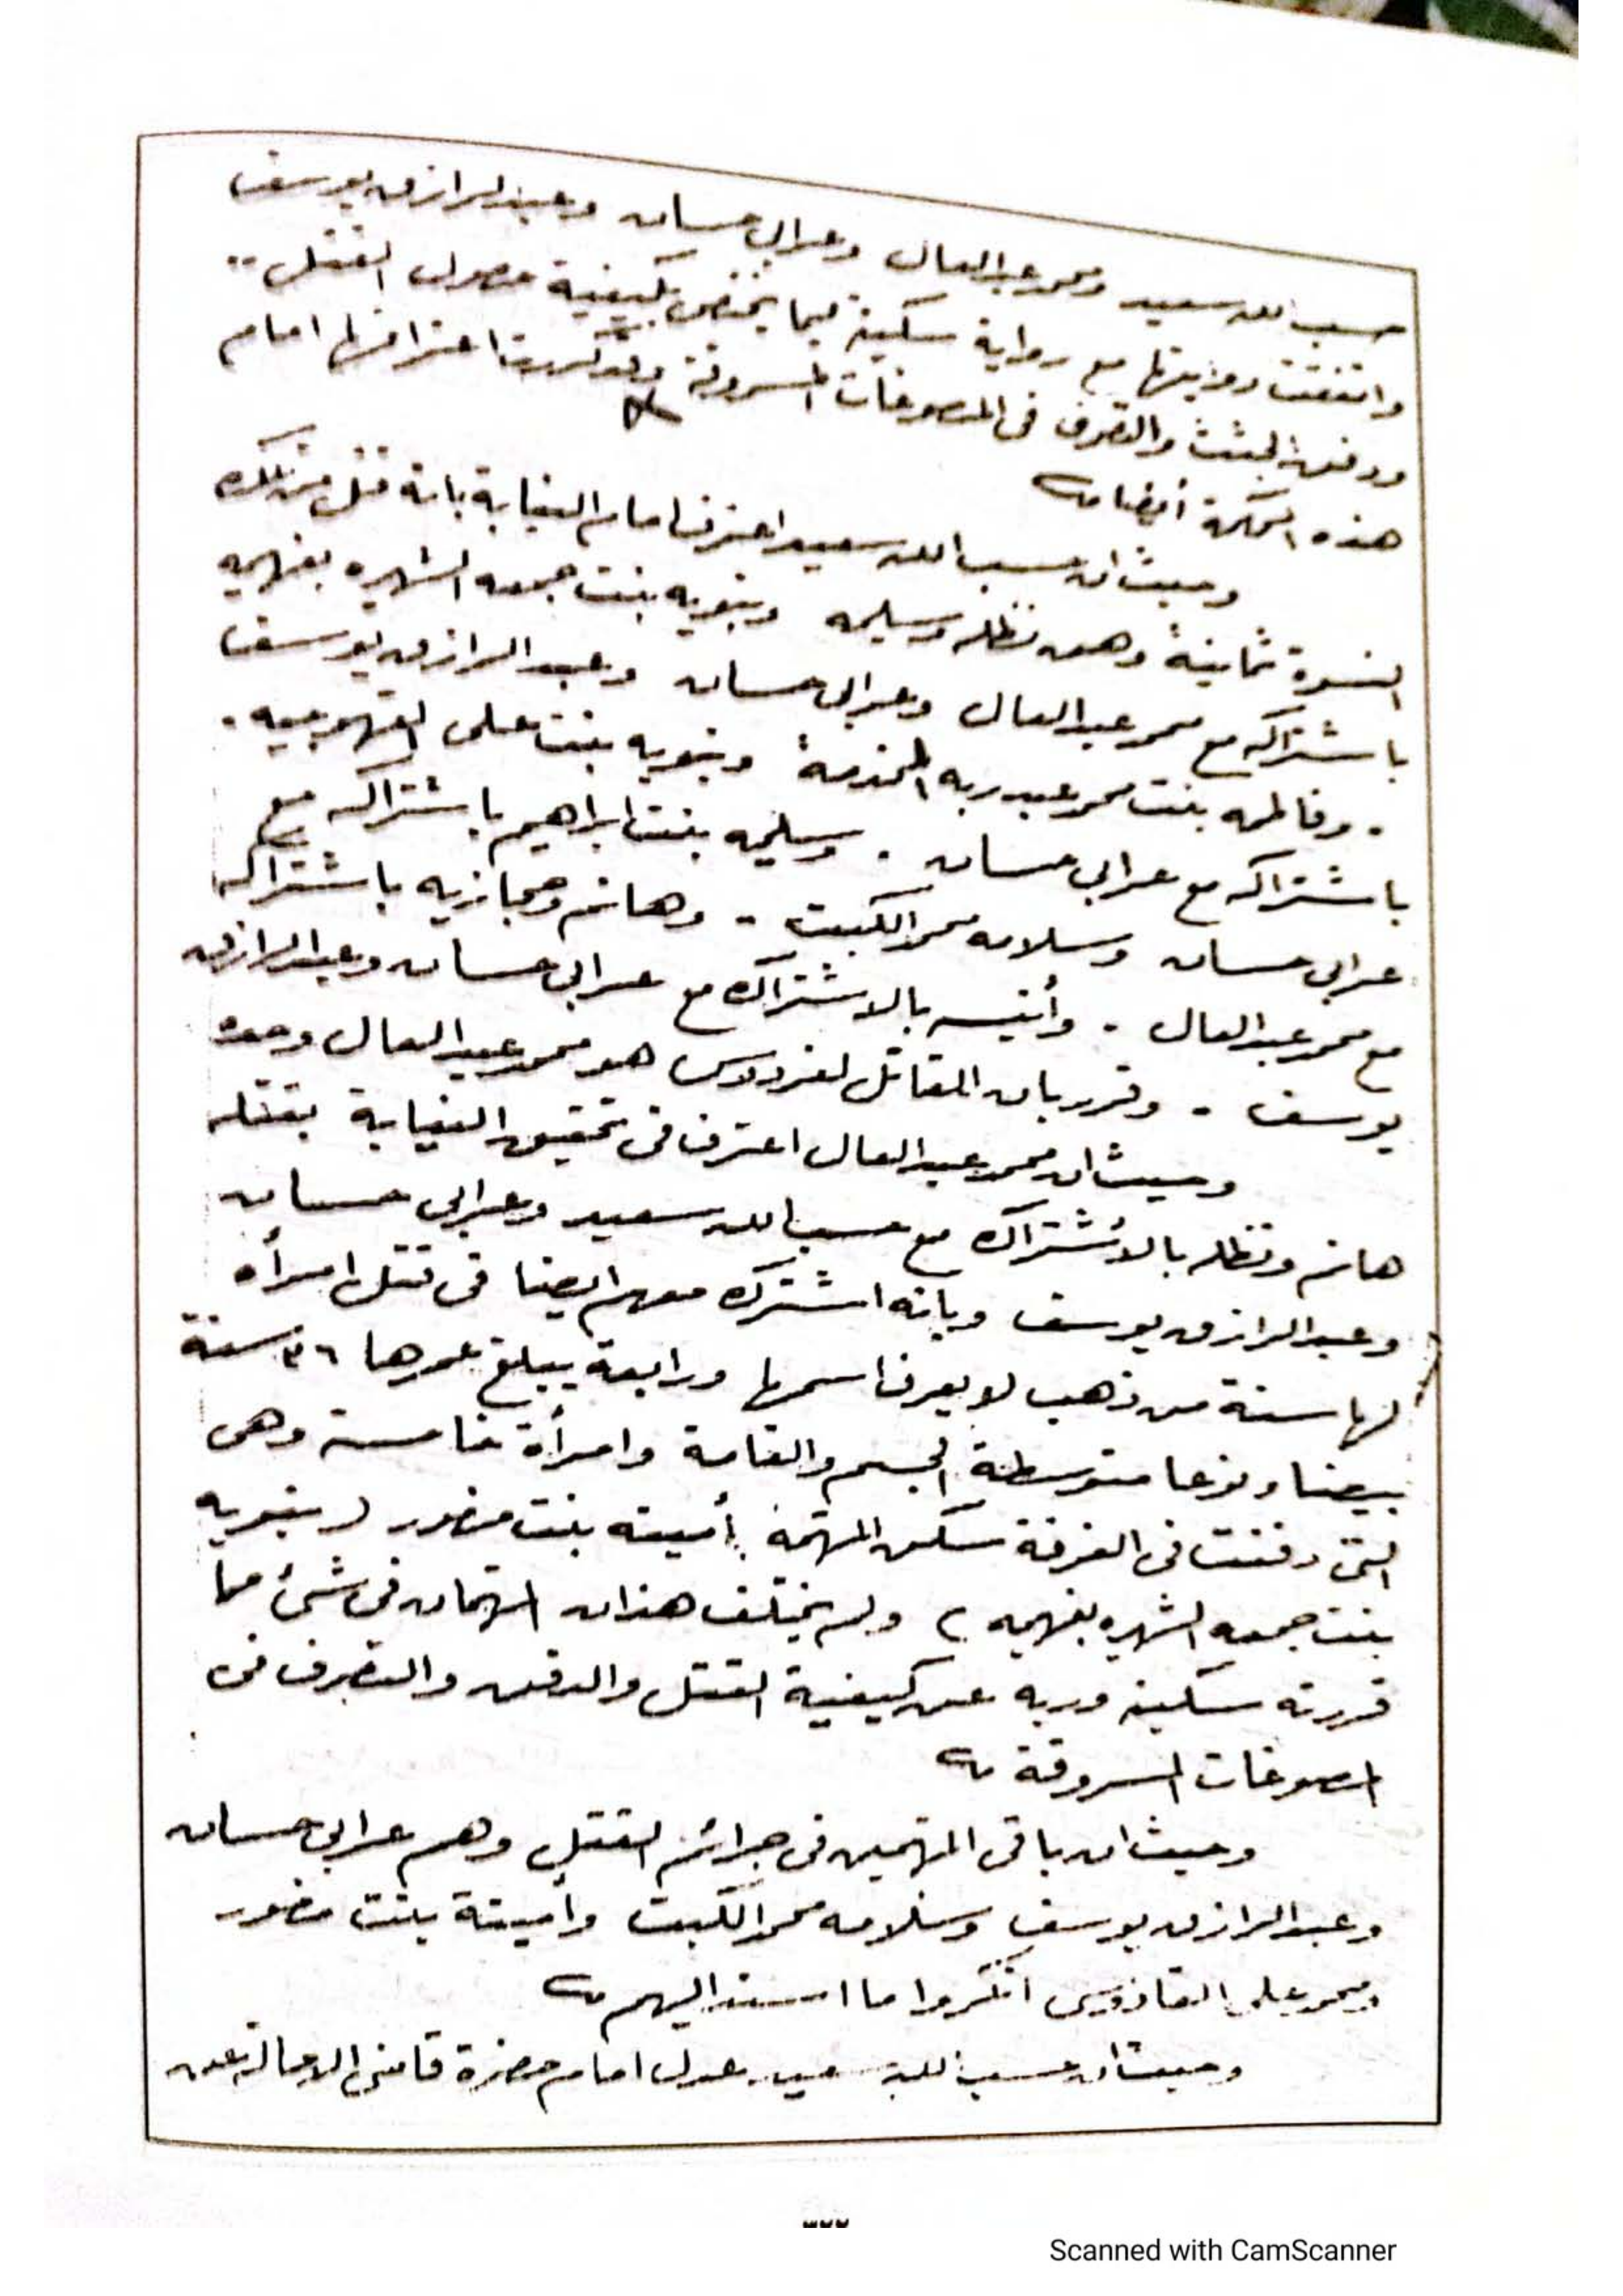 حسب الله سعيد ومحمد عبد العال وعرابى حسان وعبد الرازق يوسف
واتفقت روايتها مع رواية سكينه فيما يختص بكيفية حصول القتل ..
ودفن الجثث والتصرف فى المصوغات المسروقة وقد كررتا اعترافها امام
هذه المحكمة أيضا
وحيث ان حسب الله سعيد اعترف امام النيابة بانه قتل من تلك
النسوة ثمانية وهن نظله وسليمه ونبويه بنت جمعه الشهيره بفهيمه
باشتراكه مع محمد عبد العال وعرابى حسان وعبد الرازق يوسف
. وفاطمه بنت محمد عبد ربه المخدمة ونبويه بنت على القهوجيه .
باشتراكه مع عرابى حسان . وسليمه بنت ابراهيم باشتراكه مع
عرابى حسان وسلامه محمد الكبت - وهانم وحجازيه باشتراكه
مع محمد عبد العال . وأنيسه بالاشتراك مع عرابى حسان وعبد الرازق
يوسف . وقرر بان القاتل لفردوس هو محمد عبد العال وحده
وحيث ان محمد عبد العال اعترف فى تحقيق النيابة بقتله
هانم ونظله بالاشتراك مع حسب الله سعيد وعرابى حسان
وعبد الرازق يوسف وبانه اشترك معهم ايضا فى قتل امرأه
لها سنة من ذهب لا يعرف اسمها ورابعة يبلغ عمرها ٣٦ سنة
بيضا ونوعا متوسطة الجسم والقامة وامرأة خامسة وهى
التى دفنت فى الغرفة سكن المتهمة أمينه بنت منصور ( نبويه
بنت جمعه الشهيره بفهيمه ) ولم يختلف هذان المتهمان فى شئ مما
قررته سكينه وريه عن كيفية القتل والدفن والتصرف فى
المصوغات المسروقة
وحيث ان باقى المتهمين فى جرائم القتل وهم عرابى حسان
وعبد الرازق يوسف وسلامه محمد الكبت وأمينة بنت منصور
ومحمد على القادوسى انكروا ما اسند اليهم
وحيث ان حسب الله سعيد عدل امام حضرة قاضى الاحالة عن
٣٢٢
Scanned with CamScanner